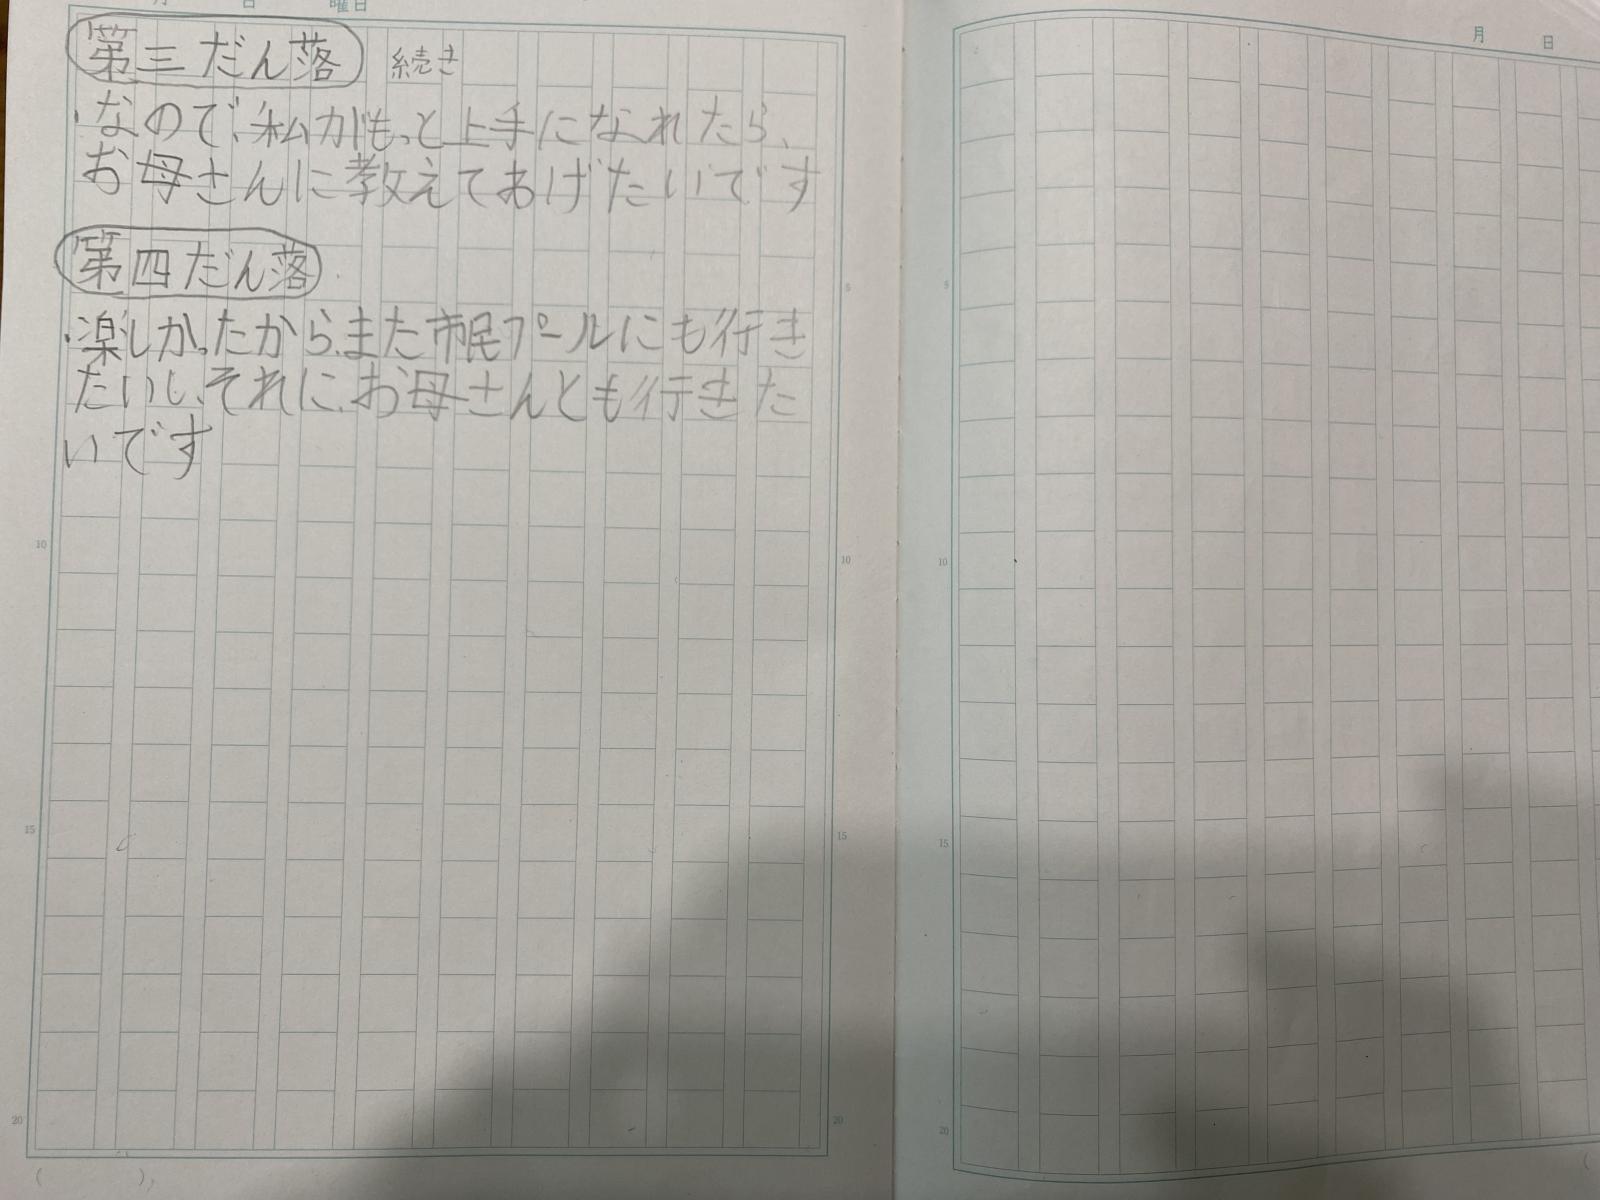 月 日 曜日
第三だん落 続き
・なので、私がもっと上手になれたら、
お母さんに教えてあげたいです
第四だん落
・楽しかったから、また市民プールにも行き
たいし、それに、お母さんとも行きた
いです
5
10
10
15
15
20
20
( )
月 日
5
10
15
20